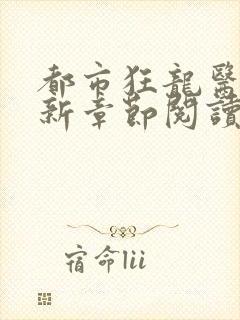 都市狂龍醫
新章節閱讀
宿命lii